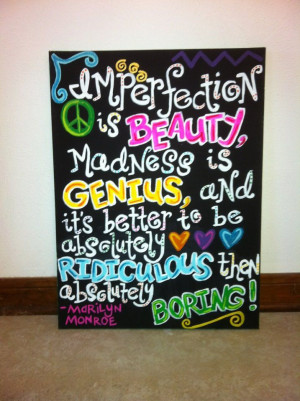 IMPERFECTION
is BEAUTY,
MadNess is
GENIUS, aNd
it's better to be
absolutely
RIDICULOUS then
absolutely
BORING!
-MARILYN
MONROE